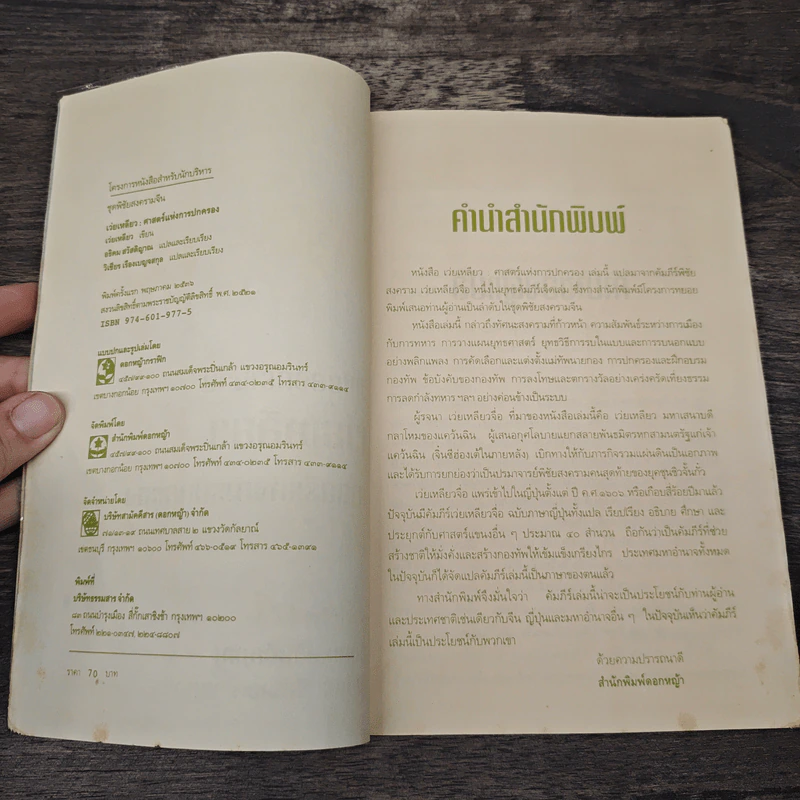 โครงการหนังสือสำหรับนักบริหาร
ชุดพิชัยสงครามจีน
เว่ยเหลียว : ศาสตร์แห่งการปกครอง
เว่ยเหลียว เขียน
อธิคม สวัสดิญาณ แปลและเรียบเรียง
วิเชียร เรืองเบญจสกุล แปลและเรียบเรียง
พิมพ์ครั้งแรก พฤษภาคม ๒๕๓๖
สงวนลิขสิทธิ์ตามพระราชบัญญัติลิขสิทธิ์ พ.ศ. ๒๕๒๑
ISBN 974-601-977-5
แบบปกและรูปเล่มโดย
ดอกหญ้ากราฟิก
ถนนสมเด็จพระปิ่นเกล้า แขวงอรุณอมรินทร์
เขตบางกอกน้อย กรุงเทพฯ ๑๐๗๐๐ โทรศัพท์ ๔๓๔-๐๒๓๕ โทรสาร ๔๓๓-๙๑๑๔
จัดพิมพ์โดย
สำนักพิมพ์ดอกหญ้า
ถนนสมเด็จพระปิ่นเกล้า แขวงอรุณอมรินทร์
เขตบางกอกน้อย กรุงเทพฯ ๑๐๗๐๐ โทรศัพท์ ๔๓๔-๐๒๓๕ โทรสาร ๔๓๓-๙๑๑๔
จัดจำหน่ายโดย
บริษัทสามัคคีสาร (ดอกหญ้า) จำกัด
ถนนเทศบาลสาย ๒ แขวงวัดกัลยาณ์
เขตธนบุรี กรุงเทพฯ ๑๐๖๐๐ โทรศัพท์ ๔๖๖-๐๕๑๙ โทรสาร ๔๖๕-๑๓๙๑
พิมพ์ที่
บริษัทธรรมสาร จำกัด
๘๓ ถนนบำรุงเมือง สี่กั๊กเสาชิงช้า กรุงเทพฯ ๑๐๒๐๐
โทรศัพท์ ๒๒๑-๐๓๔๗, ๒๒๔-๘๘๐๗
ราคา 70 บาท
คำนำสำนักพิมพ์
หนังสือ เว่ยเหลียว ศาสตร์แห่งการปกครอง เล่มนี้ แปลมาจากคัมภีร์พิชัย
สงคราม เว่ยเหลียวจื่อ หนึ่งในยุทธคัมภีร์เจ็ดเล่ม ซึ่งทางสำนักพิมพ์มีโครงการทยอย
พิมพ์เสนอท่านผู้อ่านเป็นลำดับในชุดพิชัยสงครามจีน
หนังสือเล่มนี้ กล่าวถึงทัศนะสงครามที่ก้าวหน้า ความสัมพันธ์ระหว่างการเมือง
กับการทหาร การวางแผนยุทธศาสตร์ ยุทธวิธีการรบในแบบและการรบนอกแบบ
อย่างพลิกแพลง การคัดเลือกและแต่งตั้งแม่ทัพนายกอง การปกครองและฝึกอบรม
กองทัพ ข้อบังคับของกองทัพ การลงโทษและตกรางวัลอย่างเคร่งครัดเที่ยงธรรม
การลดกำลังทหาร ฯลฯ อย่างค่อนข้างเป็นระบบ
ผู้รจนา เว่ยเหลียวจื่อ ที่มาของหนังสือเล่มนี้คือ เว่ยเหลียว มหาเสนาบดี
กลาโหมของแคว้นฉิน ผู้เสนอกุศโลบายแยกสลายพันธมิตรหกสามนตรัฐแก่เจ้า
แคว้นฉิน (จิ๋นซีฮ่องเต้ในภายหลัง) เบิกทางให้กับภารกิจรวมแผ่นดินเป็นเอกภาพ
และได้รับการยกย่องว่าเป็นปรมาจารย์พิชัยสงครามคนสุดท้ายของยุคชุนชิวจั้นกั๋ว
เว่ยเหลียวจื่อ แพร่เข้าไปในญี่ปุ่นตั้งแต่ ปี ค.ศ.๑๖๐๖ หรือเกือบสี่ร้อยปีมาแล้ว
ปัจจุบันมีคัมภีร์เว่ยเหลียวจื่อ ฉบับภาษาญี่ปุ่นทั้งแปล เรียบเรียง อธิบาย ศึกษา และ
ประยุกต์กับศาสตร์แขนงอื่น ๆ ประมาณ ๔๐ สำนวน ถือกันว่าเป็นคัมภีร์ที่ช่วย
สร้างชาติให้มั่งคั่งและสร้างกองทัพให้เข้มแข็งเกรียงไกร ประเทศมหาอำนาจทั้งหมด
ในปัจจุบันก็ได้จัดแปลคัมภีร์เล่มนี้เป็นภาษาของตนแล้ว
ทางสำนักพิมพ์จึงมั่นใจว่า คัมภีร์เล่มนี้น่าจะเป็นประโยชน์กับท่านผู้อ่าน
และประเทศชาติเช่นเดียวกับจีน ญี่ปุ่นและมหาอำนาจอื่น ๆ ในปัจจุบันเห็นว่าคัมภีร์
เล่มนี้เป็นประโยชน์กับพวกเขา
ด้วยความปรารถนาดี
สำนักพิมพ์ดอกหญ้า